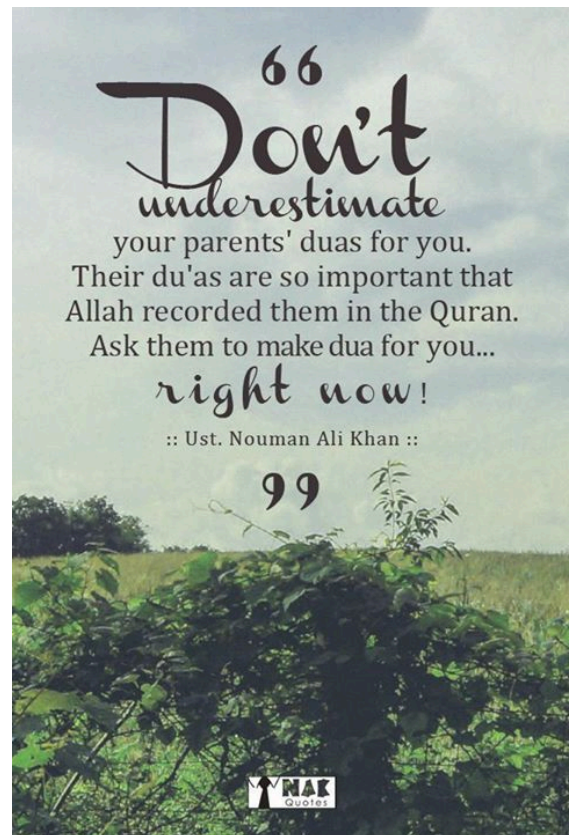 “
Don't
underestimate
your parents' duas for you.
Their du'as are so important that
Allah recorded them in the Quran.
Ask them to make dua for you...
right now!
:: Ust. Nouman Ali Khan ::
”
NAK
Quotes